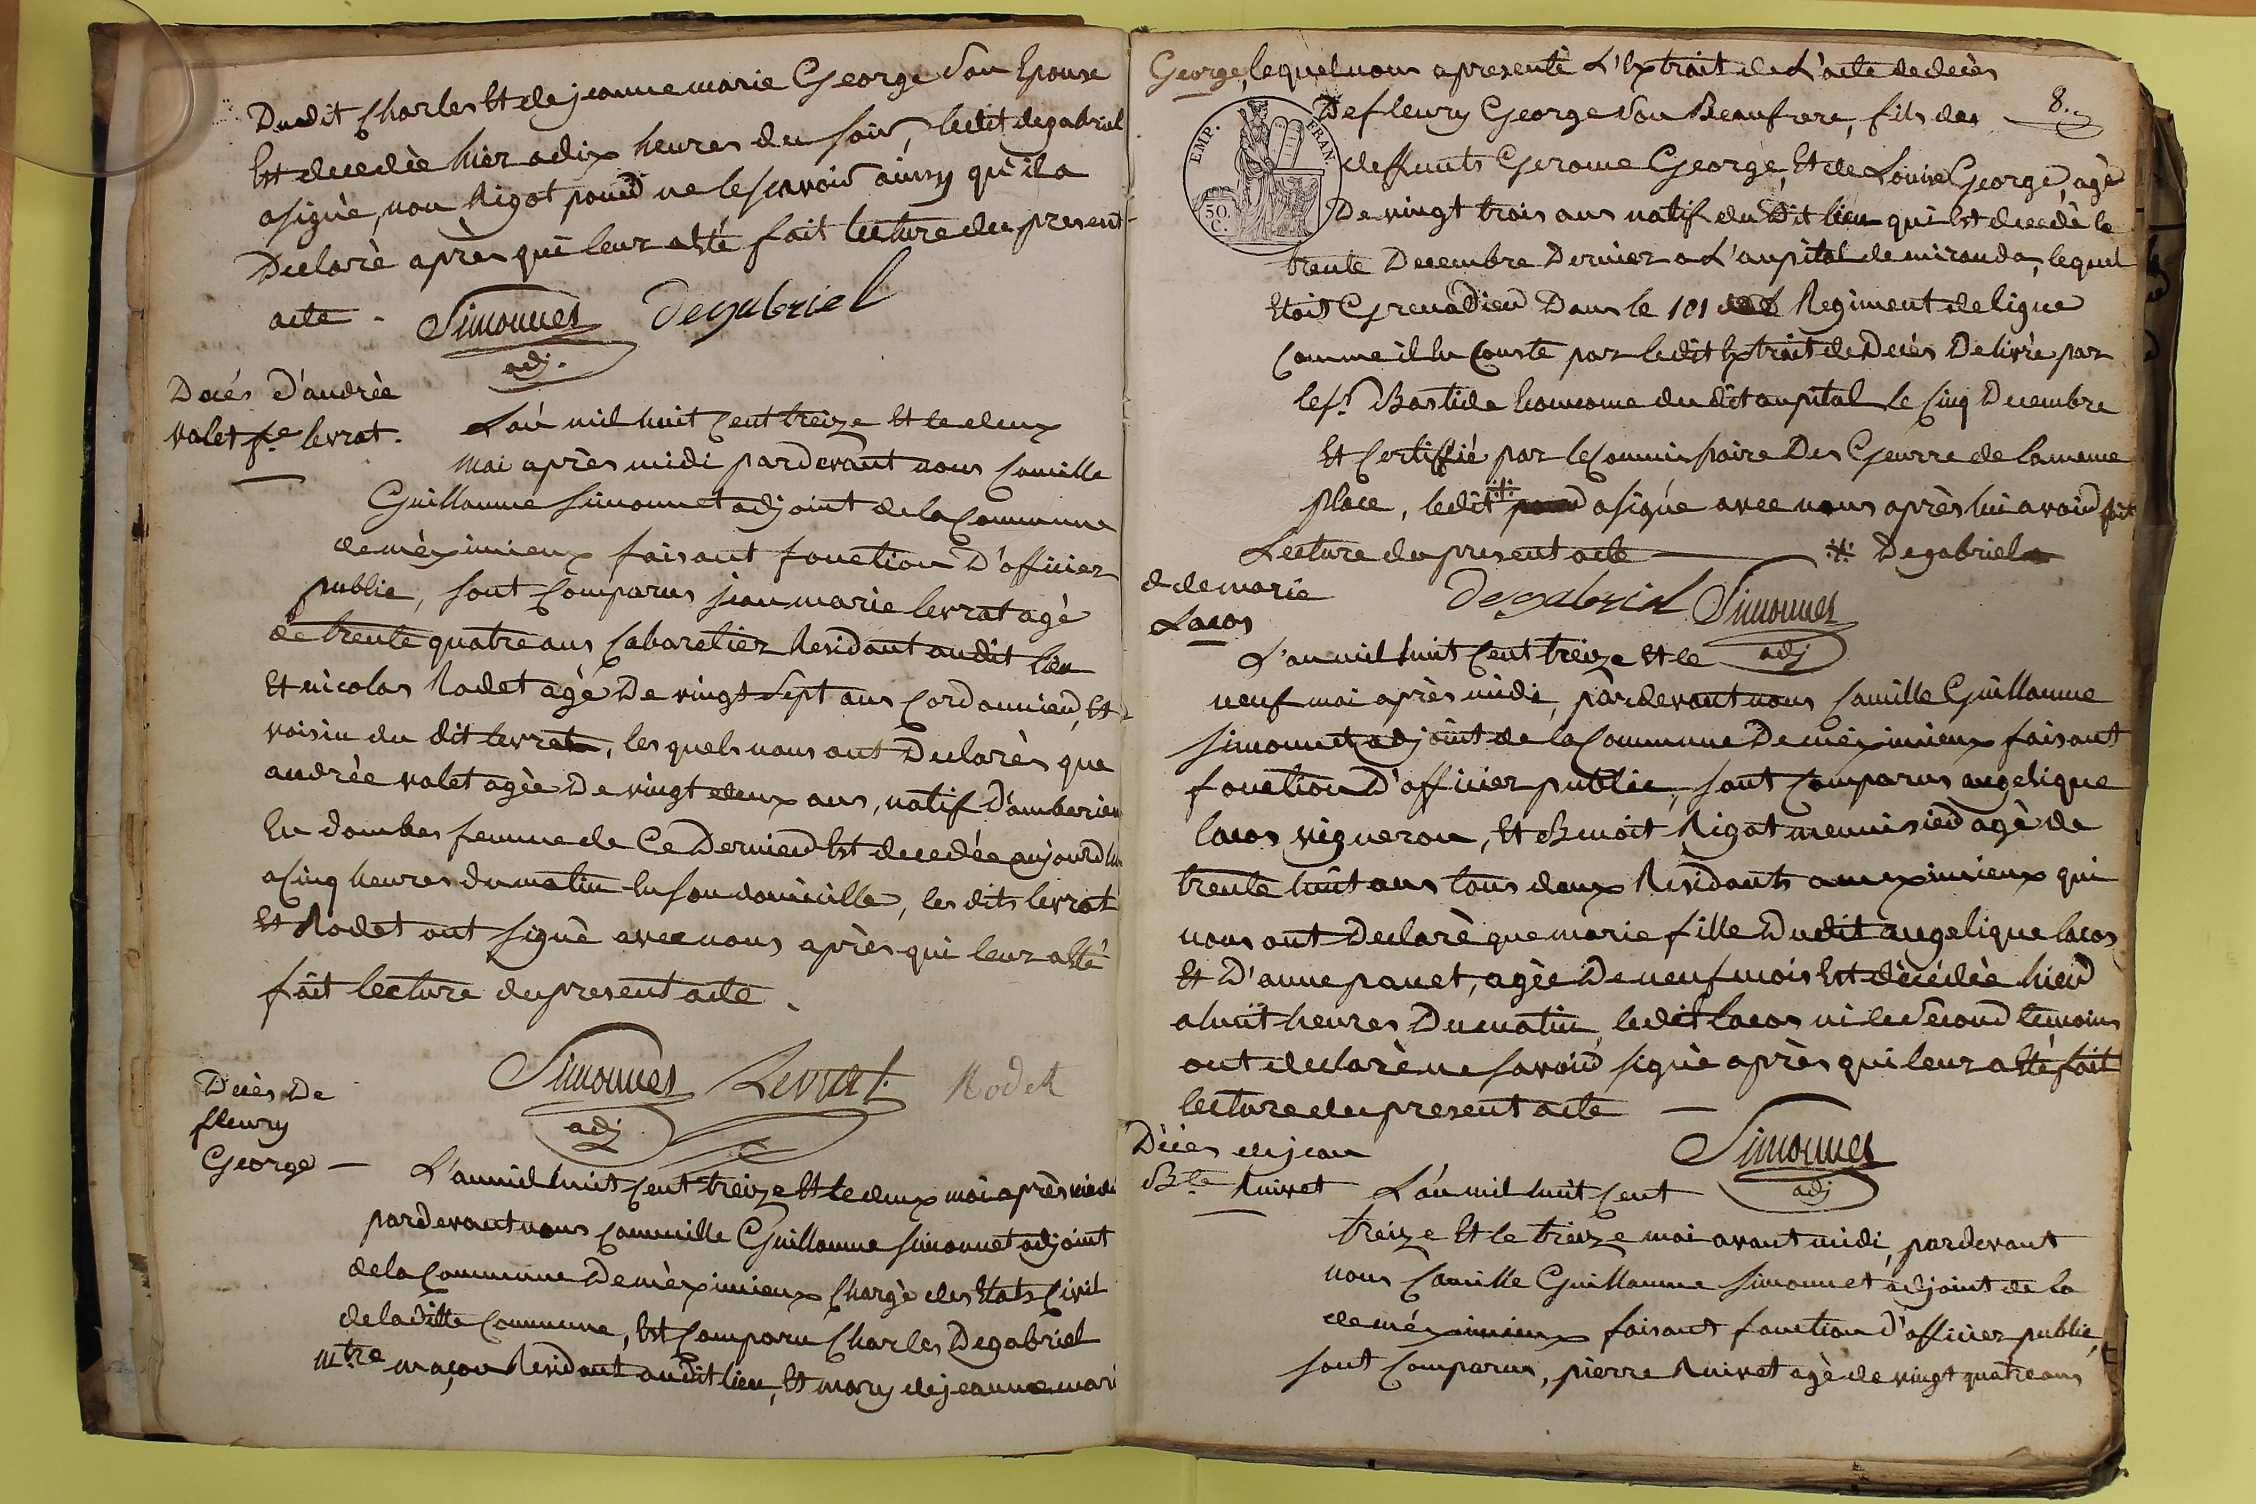 Dudit Charles Et de jeanne marie George son Epouse
Est decedèe hier a dix heures du soir, ledit degabriel
a signè, non Rigot pour ne le scavoir ainsy qu'il a
Declarè après qui leur a étè fait lecture du present
acte.
Simonnet degabriel
adj.
Decés d'andrèe
valet fe levrat.
L'an mil huit Cent treize Et le deux
mai après midi pardevant nous Camille
Guillaume Simonnet adjoint de la Commune
de mèximieux faisant fonction D'officier
public, sont Comparus jean marie levrat agè
de trente quatre ans Cabaretier Residant audit lieu
Et nicolas Rodet agè De vingt Sept ans Cordonnier, Et
voisin du dit levrat, les quels nous ont Declarès que
andrèe valet agèe De vingt deux ans, natif D'amberieu
En dombes femme de Ce Dernier Est decedée aujourdhu
a Cinq heures du matin En son domicille, les dits levrat
Et Rodet ont signè avec nous après qui leur a étè
fait lecture du present acte.
Simonnet Levrat Rodet
adj
Decès De
fleury
George —
L'an mil huit Cent treize Et le deux mai après midi
pardevant nous Cammille Guillaume Simonnet adjoint
de la Commune De mèximieux Chargè des Etats Civil
de la ditte Commune, Est Comparu Charles Degabriel
mtre maçon Residant audit lieu, Et mary de jeanne mari
8.
George, lequel nous a presentè L'Extrait de L'acte de decès
De fleury George son Beaufrere, fils des
EMP. FRAN.
50. C.
deffunts Gerome George, Et de Louise George, agè
De vingt trois ans natif du Dit lieu qui Est decedè le
trente Decembre Dernier a L'aupital de miranda, lequel
Etoit Grenadier Dans le 101 Regiment de ligne
Comme il lu Conste par ledit Extrait de Decès Delivrè par
le sr. Bastide Econome du dit aupital le Cinq Decembre
Et Certiffié par le Commissaire Des Geurre de la meme
place, ledit a signè avec nous après lui avoir fait
Lecture du present acte — Degabriel
degabriel Simonnet
adj
d de marie
Lacos
L'an mil huit Cent treize Et le
neuf mai après midi, pardevant nous Camille Guillaume
Simonnet adjoint de la Commune De mèximieux faisant
fonction D'officier public, sont Comparus angelique
lacos vigneron, Et Benoit Rigot menuisier agè de
trente huit ans tous deux Residants a meximieux qui
nous ont Declarè que marie fille Dudit angelique lacos
Et D'anne panet, agèe De neuf mois Est dècèdèe hier
a huit heures Du matin, ledit lacos ni le Second temoins
ont declarè ne savoir signè après qui leur a étè fait
lecture du present acte —
Simonnet
adj
Dècès de jean
Bte Ruivet
L'an mil huit Cent
treize Et le treize mai avant midi, pardevant
nous Camille Guillaume Simonnet adjoint de la
de mèximieux faisant fonction d'officier public,
sont Comparus, pierre Ruivet agè de vingt quatre ans